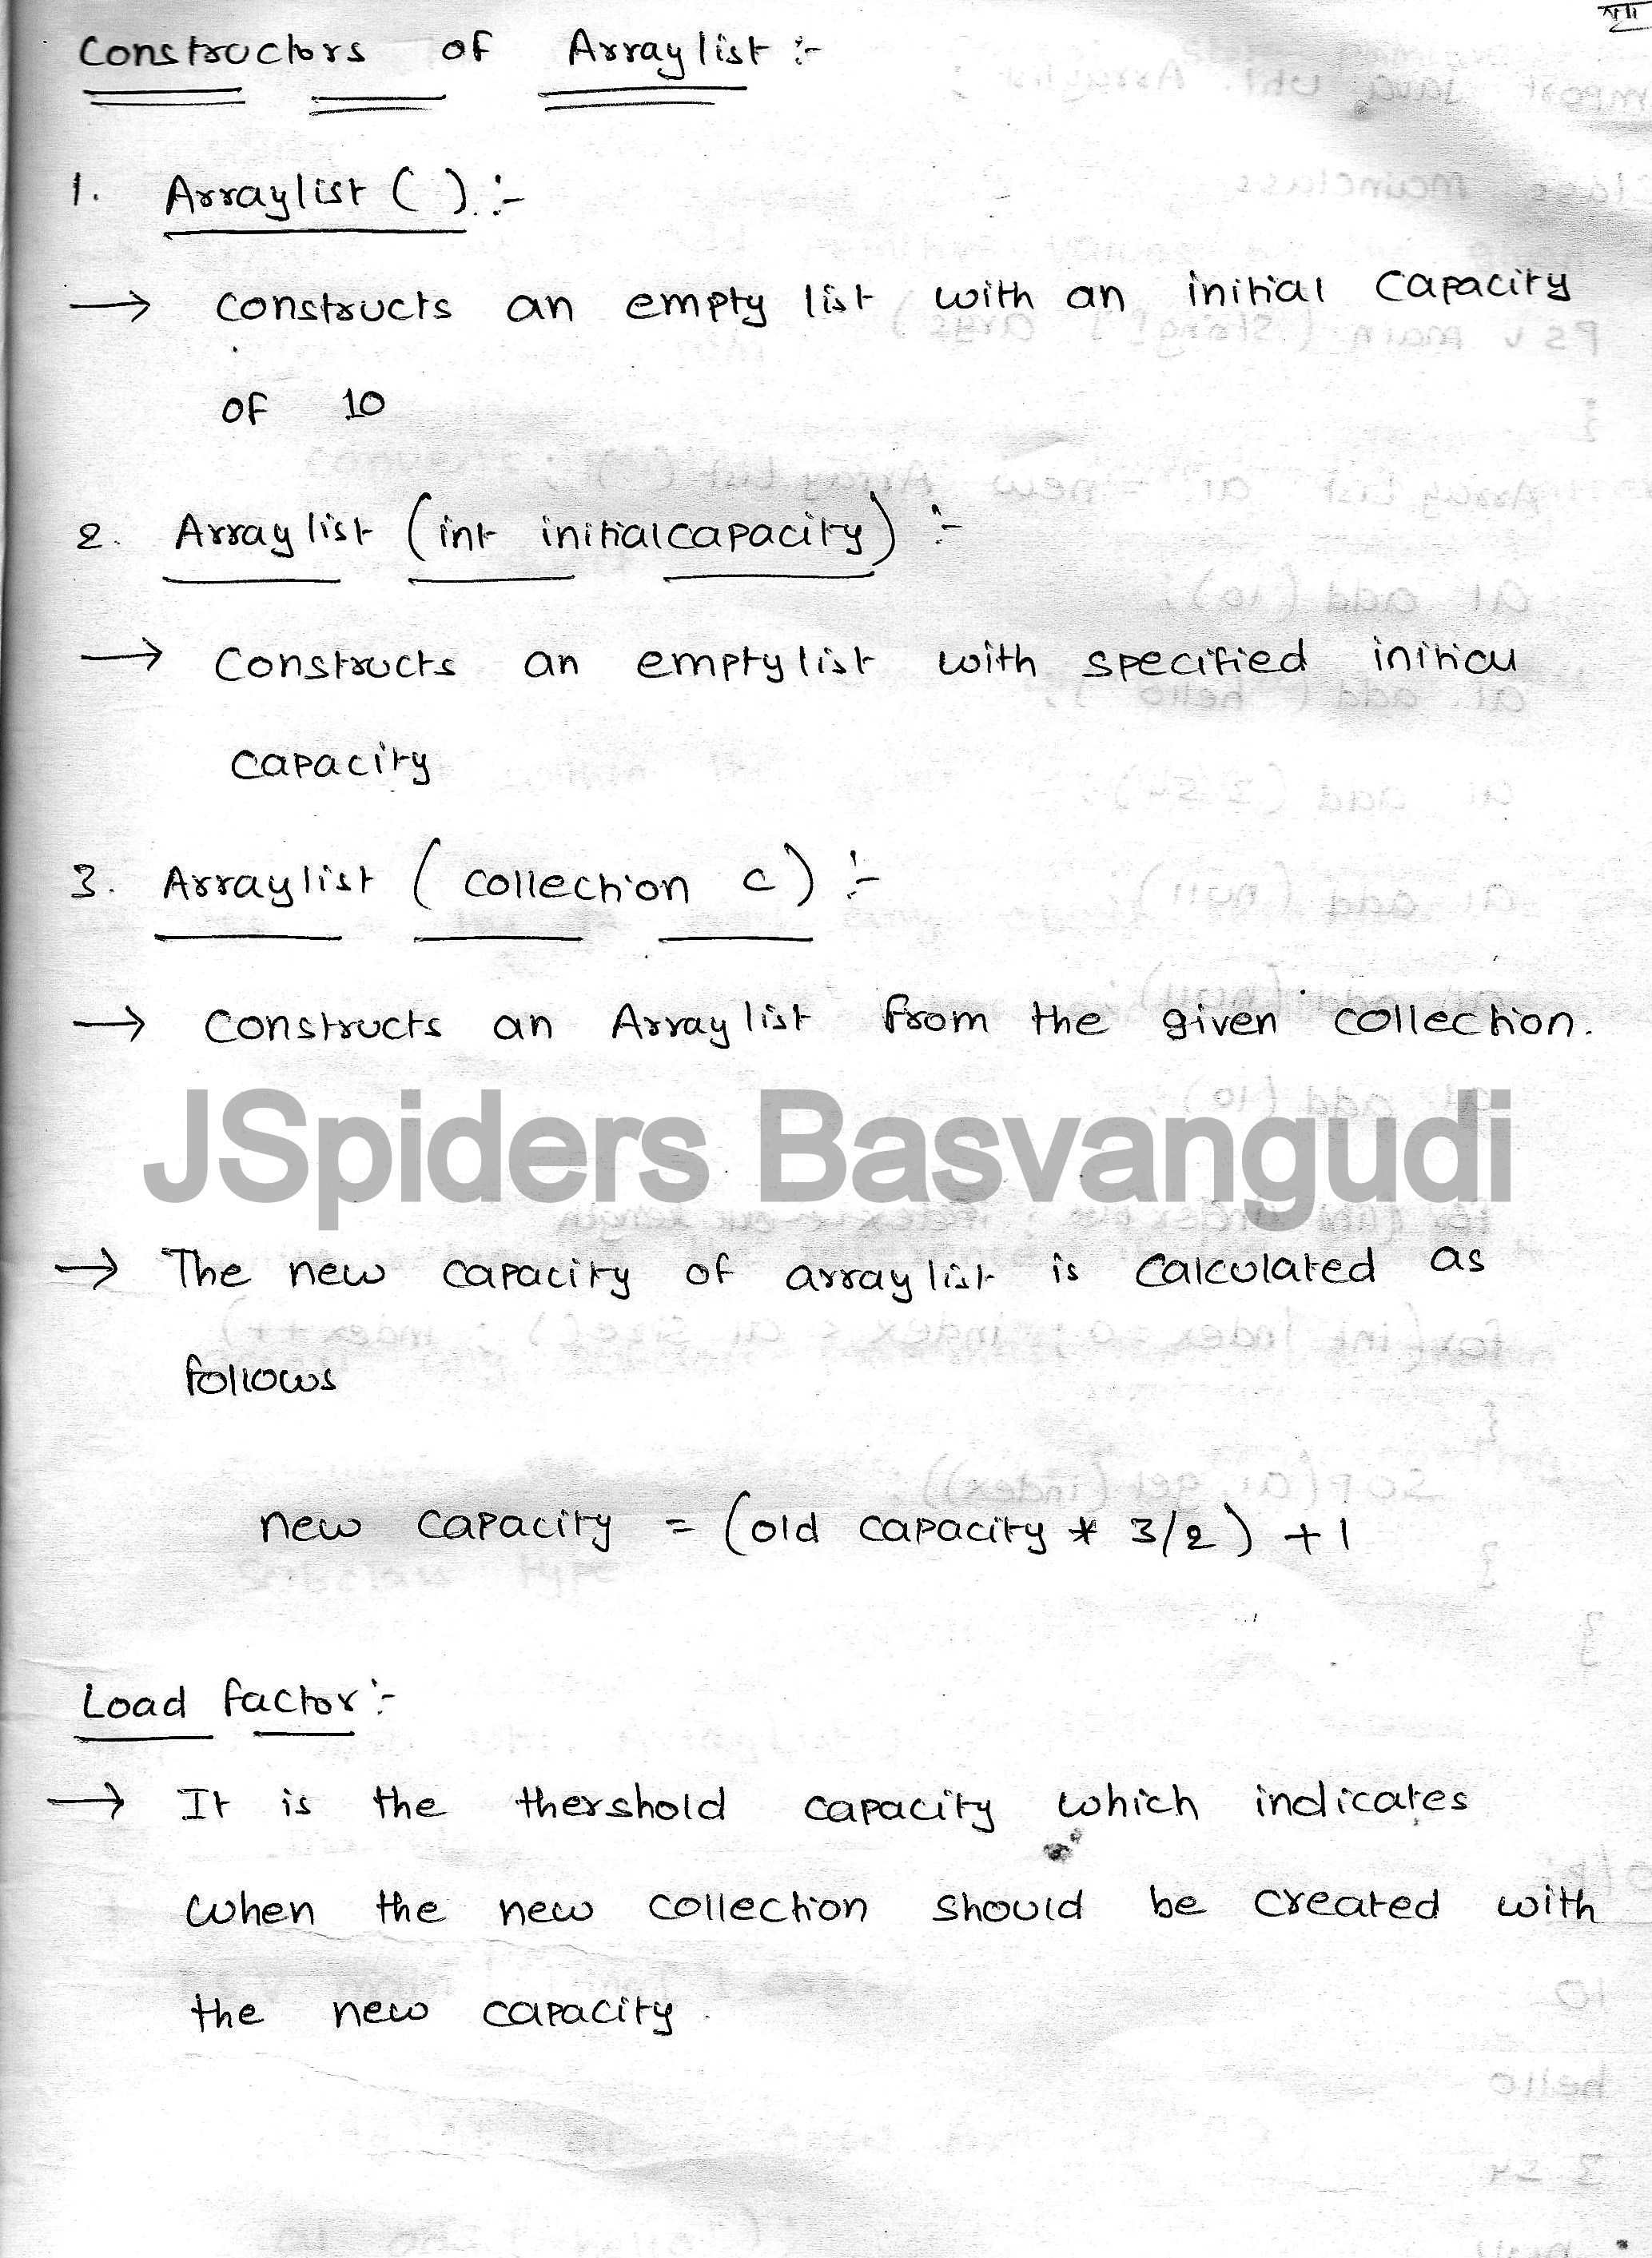 Constructors of Arraylist :-
1. Arraylist ( ) :-
→ constructs an empty list with an initial capacity
of 10
2. Arraylist (int initialcapacity) :-
→ Constructs an emptylist with specified initial
capacity
3. Arraylist ( collection c) :-
→ Constructs an Arraylist from the given collection.
JSpiders Basvangudi
→ The new capacity of arraylist is calculated as
follows
new capacity = (old capacity * 3/2) +1
Load factor :-
→ It is the thershold capacity which indicates
when the new collection should be created with
the new capacity.